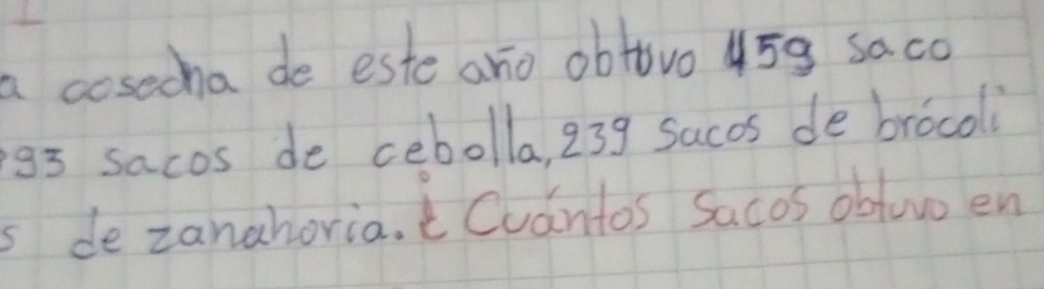 a cosecha de este año obtuvo 459 saco
93 sacos de cebolla, 239 sacos de brócoli
s de zanahoria. ¿ Cuántos sacos obtuvo en